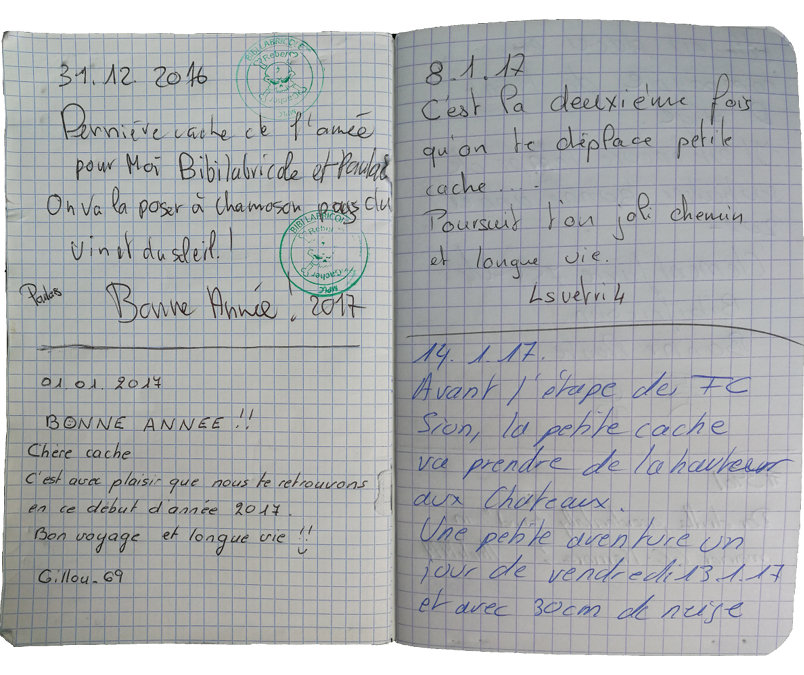 31.12.2016
Dernière cache de l'année
pour Moi Bibilabricole et Paulas
On va la poser à Chamoson pays du
vin et du soleil !
Paulas
Bonne Année ! 2017
01.01.2017
BONNE ANNEE !!
Chère cache
C'est avec plaisir que nous te retrouvons
en ce début d'année 2017.
Bon voyage et longue vie !!
Gillou-69
BIBILABRICOLE
Rebel
Geocacher
BIBILABRICOLE
Rebel
Cacher
8.1.17
C'est la deuxième fois
qu'on te déplace petite
cache....
Poursuit t'on joli chemin
et longue vie.
Lsvetri4
14.1.17.
Avant l'étape des FC
Sion, la petite cache
va prendre de la hauteur
aux Chateaux.
Une petite aventure un
jour de vendredi 13.1.17
et avec 30cm de neige